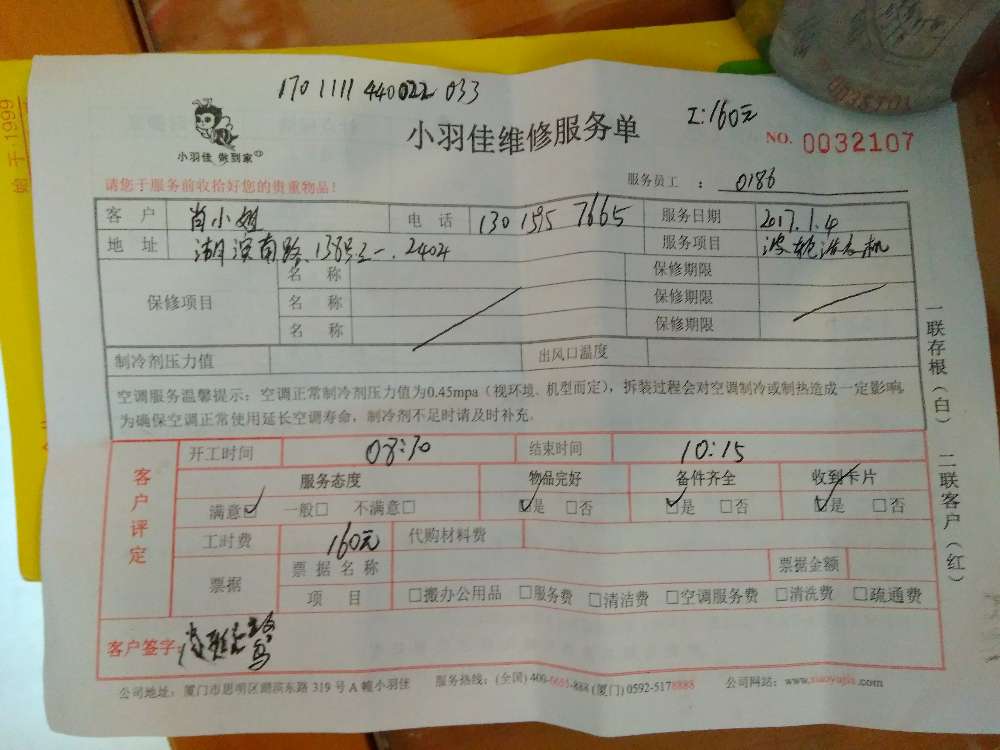 170 1111 440022 033
工:160元
小羽佳 做到家
小羽佳维修服务单
NO. 0032107
请您于服务前收拾好您的贵重物品!
服务员工 : 0186
客 户 肖小姐 电 话 130 1595 7665 服务日期 2017.1.4
地 址 湖滨南路 138号之一.2404 服务项目 波轮洗衣机
保修项目 名 称 保修期限
名 称 保修期限
名 称 保修期限
制冷剂压力值 出风口温度
空调服务温馨提示:空调正常制冷剂压力值为0.45mpa(视环境、机型而定),拆装过程会对空调制冷或制热造成一定影响,
为确保空调正常使用延长空调寿命,制冷剂不足时请及时补充.
客户评定
开工时间 08:30 结束时间 10:15
服务态度 物品完好 备件齐全 收到卡片
满意☑ 一般□ 不满意□ ☑是 □否 ☑是 □否 ☑是 □否
工时费 160元 代购材料费
票据 票据名称 票据金额
项 目 □搬办公用品 □服务费 □清洁费 □空调服务费 □清洗费 □疏通费
客户签字:
一联存根(白) 二联客户(红)
公司地址:厦门市思明区湖滨东路 319 号 A 幢小羽佳 服务热线:(全国) 400-6655-888 (厦门) 0592-5178888 公司网站:www.xiaoyujia.com
于·1999